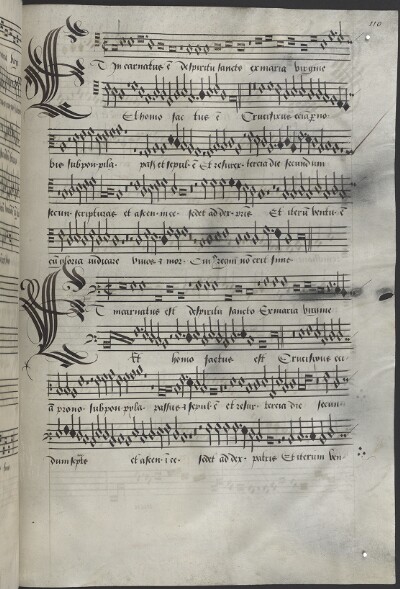 110
Et Incarnatus ē de spiritu sancto ex maria virgine
Et homo fac tus ē Crucifixus eciā p no
bis sub pon. pila. pass et sepul. ē Et resurex. tercia die secundum
secun. scripturas et ascen. in ce. sedet ad dex. pris Et iterū ventu. ē
cū gloria iudicare vivos z mor. Cui⁹ regni nō erit finis
Et incarnatus est de spiritu sancto Ex maria virgine
Et homo factus est Crucifixus eci
ā pro no. sub pon pyla. passus z sepul ē et resur. tercia die secun
dum scrip̄s et ascen. i ce. sedet ad dex. patris Et iterum ven